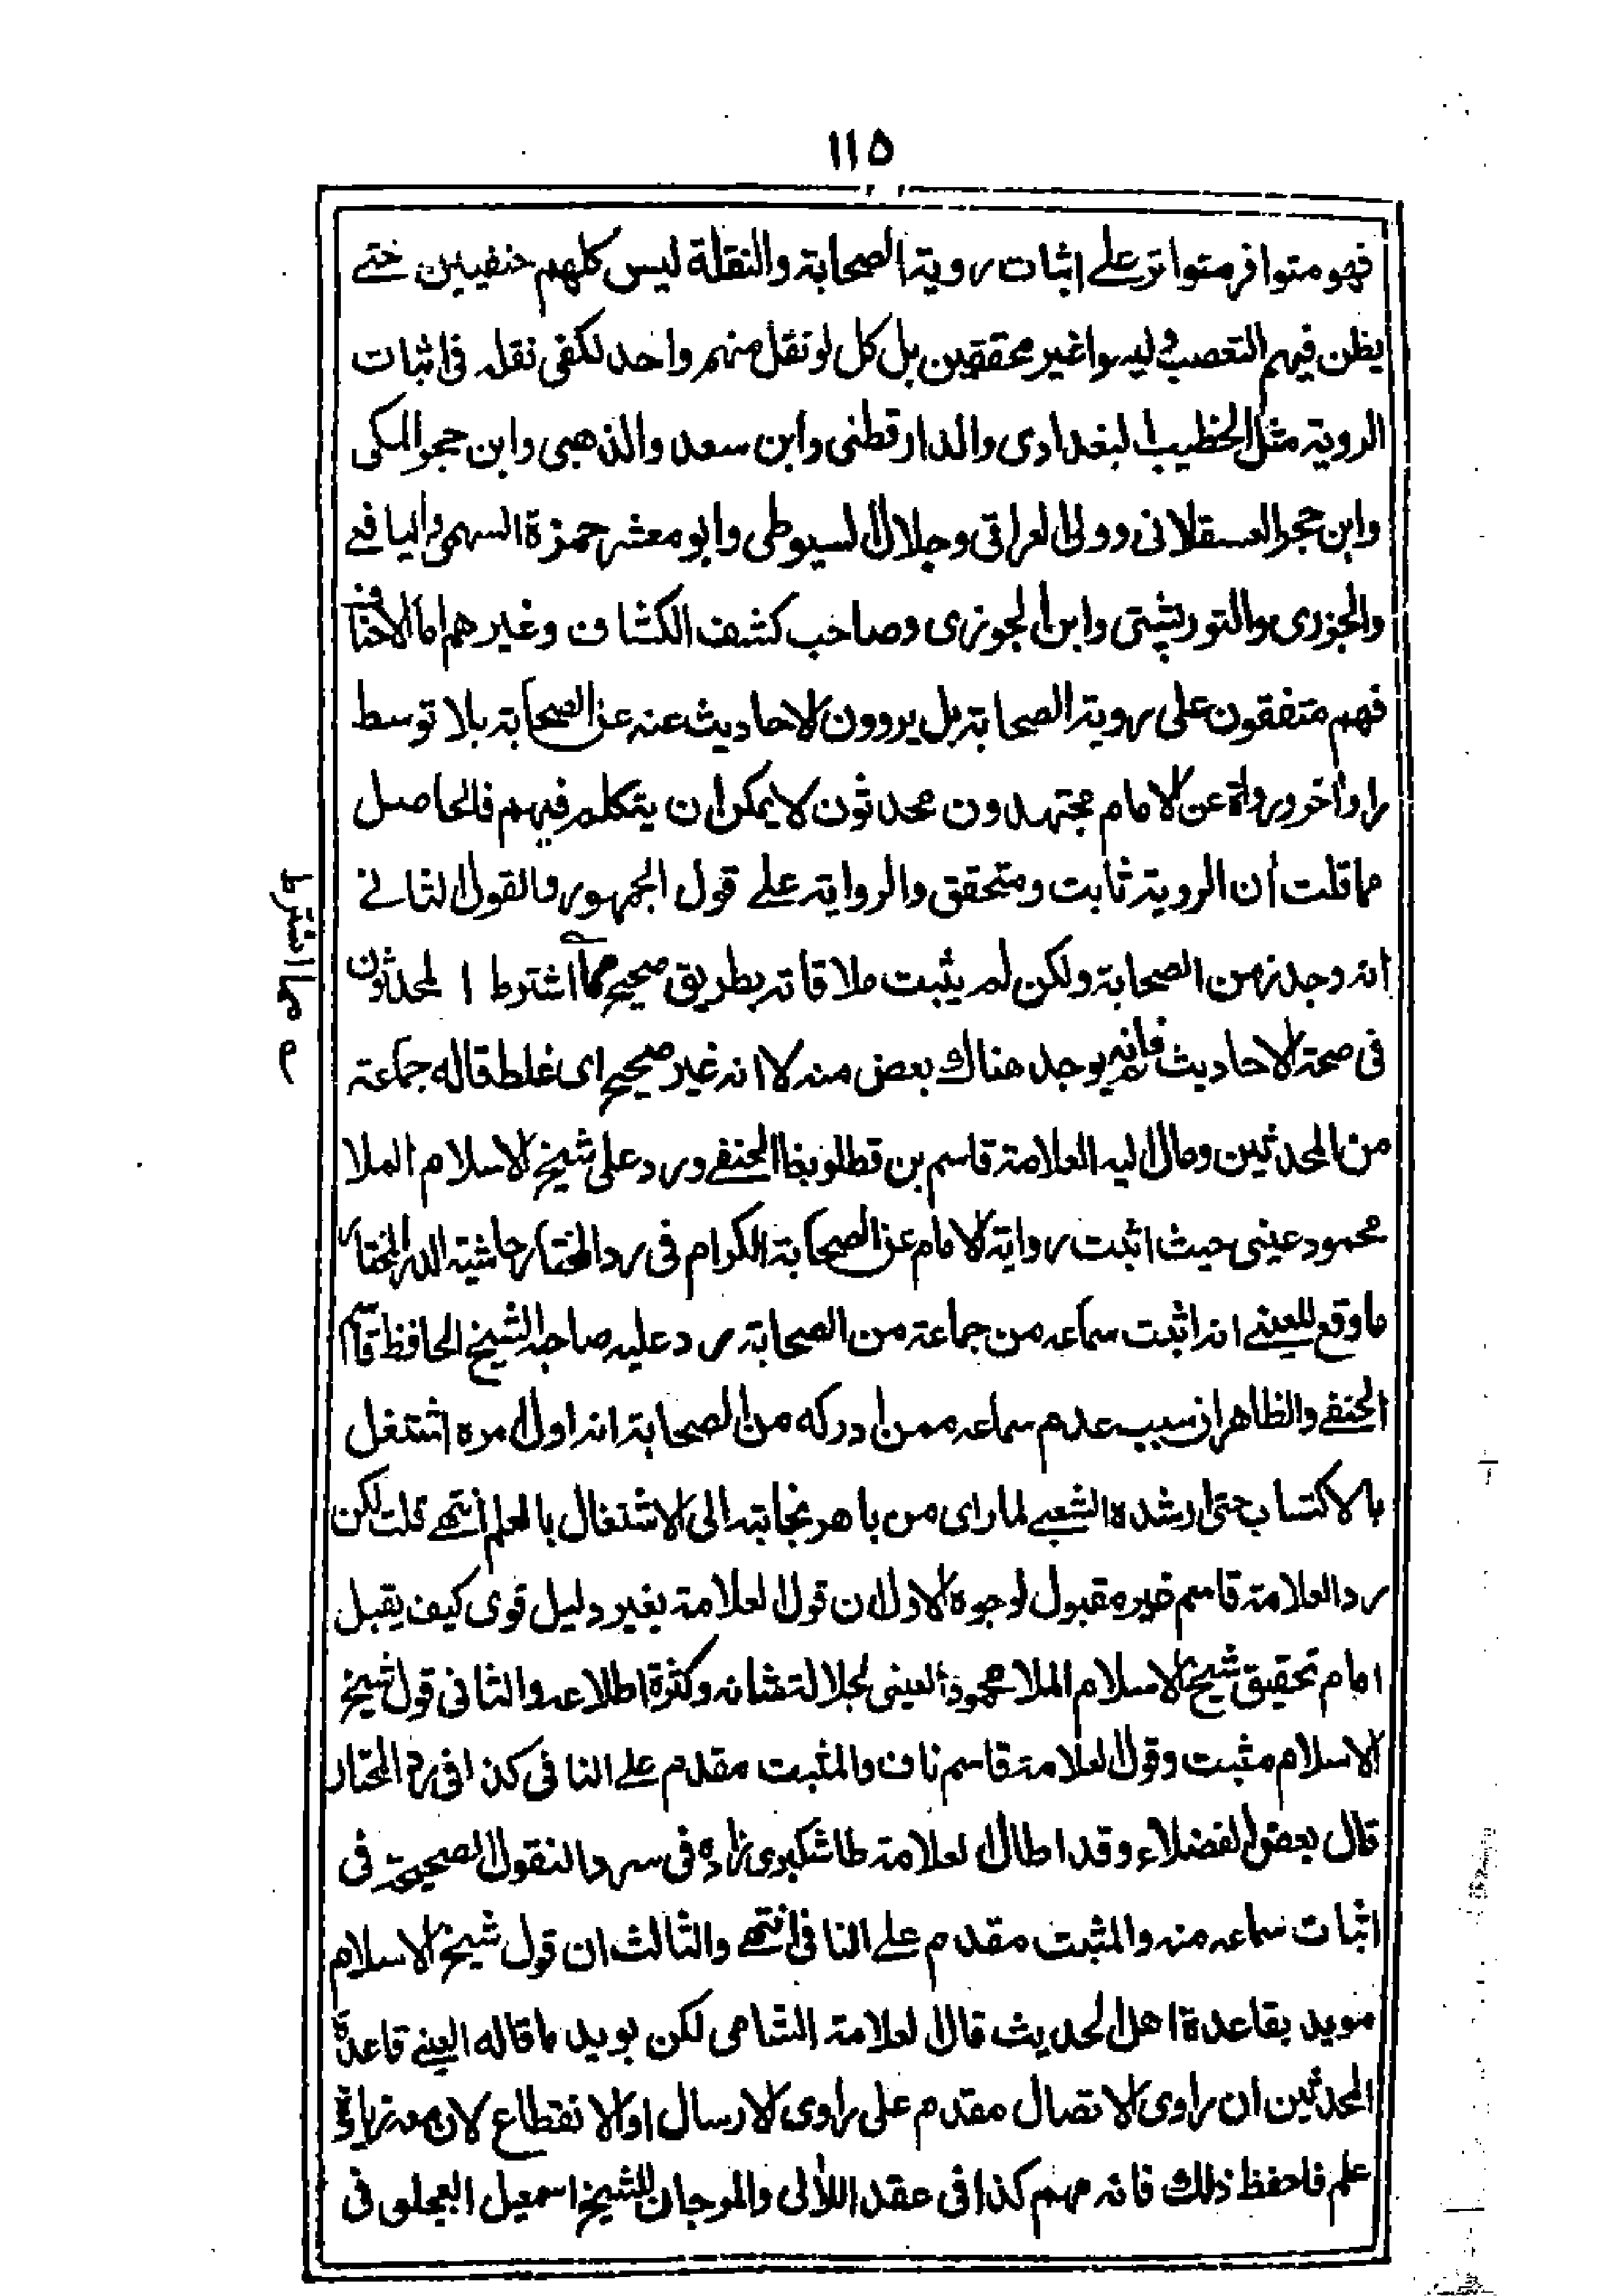 ١١٥
فهو متوافر متواتر علے اثبات روية الصحابة والنقلة ليس كلهم حنفيين حتے
يظن فيهم التعصب و ليسوا غير محققين بل كل لو نقل منهم واحد لكفى نقله فى اثبات
الروية مثل الخطيب البغدادى والدارقطنى وابن سعد والذهبى وابن حجر المكى
وابن حجر العسقلانى وولى العراقى وجلال السيوطى وابو معشر حمزة السهمى واليافعے
والجزرى والتوربشتى وابن الجوزى وصاحب كشف الكشاف وغيرهم اما الاحناف
فهم متفقون على روية الصحابة بل يروون الاحاديث عنه عن الصحابة بلا توسط
راو اخر ورواة عن الامام مجتهدون محدثون لا يمكن ان يتكلم فيهم فالحاصل
مما قلت ان الروية ثابت ومتحقق والرواية علے قول الجمهور والقول الثانے
انه وجد زمن الصحابة ولكن لم يثبت ملاقاته بطريق صحيح مما اشترط المحدثون
فى صحة الاحاديث فانه لم يوجد هناك بعض منه لا انه غير صحيح اى غلط قاله جماعة
من المحدثين ومال اليه العلامة قاسم بن قطلوبغا الحنفے ورد على شيخ الاسلام الملا
محمود عينى حيث اثبت رواية الامام عن الصحابة الكرام فى رد المختار حاشية الدر المختار
ما وقع للعينے انه اثبت سماعه من جماعة من الصحابة رد عليه صاحبه الشيخ الحافظ قاسم
الحنفے والظاهر ان سبب عدم سماعه ممن ادركه من الصحابة انه اول امره اشتغل
بالاكتساب حتى ارشده الشعبے لما راى من باهر نجابته الى الاشتغال بالعلم انتهے قلت لكن
رد العلامة قاسم غير مقبول لوجوه الاول ان قول العلامة بغير دليل قوى كيف يقبل
امام تحقيق شيخ الاسلام الملا محمود العينى لجلالة شانه وكثرة اطلاعه والثانى قول شيخ
الاسلام مثبت وقول العلامة قاسم ناف والمثبت مقدم علے النافى كذا فى رد المختار
قال بعض الفضلاء وقد اطال العلامة طاشكبرى زاده فى سرد النقول الصحيحة فى
اثبات سماعه منه والمثبت مقدم علے النافى انتهے والثالث ان قول شيخ الاسلام
مويد بقاعدة اهل الحديث قال العلامة الشامى لكن يويد ما قاله العينے قاعدة
المحدثين ان راوى الاتصال مقدم على راوى الارسال او الانقطاع لان معه زيادة
علم فاحفظ ذلك فانه مهم كذا فى عقد اللآلى والمرجان للشيخ اسمعيل العجلونى فى
مما اشترط